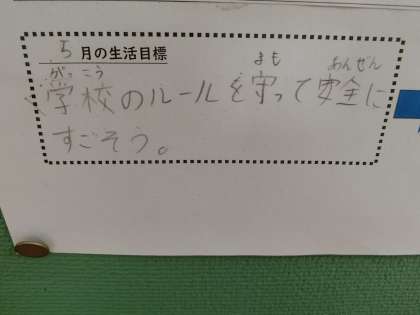 5月の生活目標
がっこう まも あんぜん
学校のルールを守って安全に
すごそう。